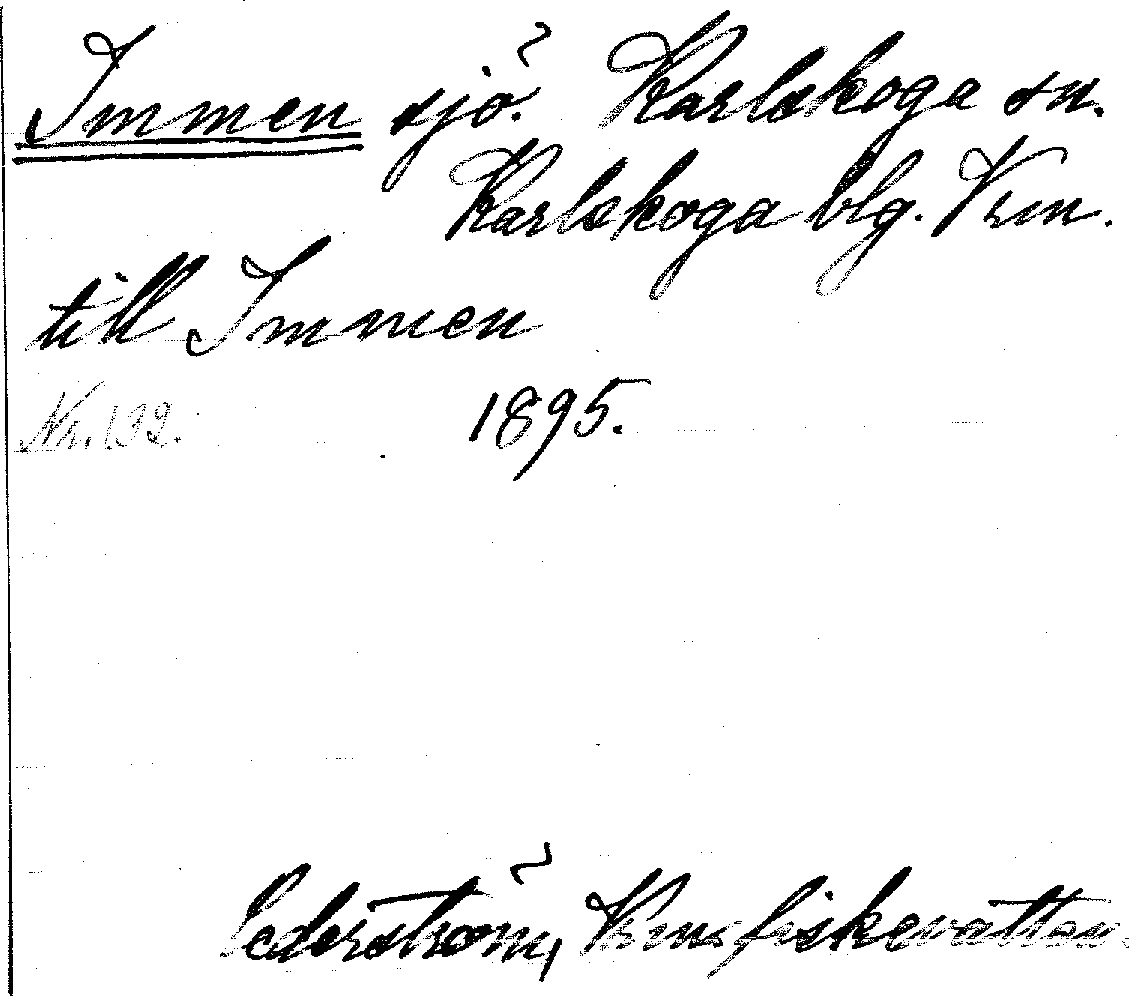 Immen sjö. Karlskoga sn.
Karlskoga blg. Vrm.
till Immen
Nr. 132. 1895.
Cederström, Vrms fiskevatten.